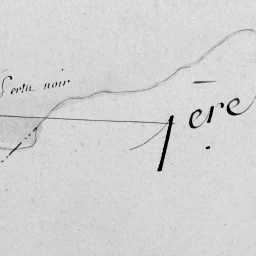 Pertu noir
1ere